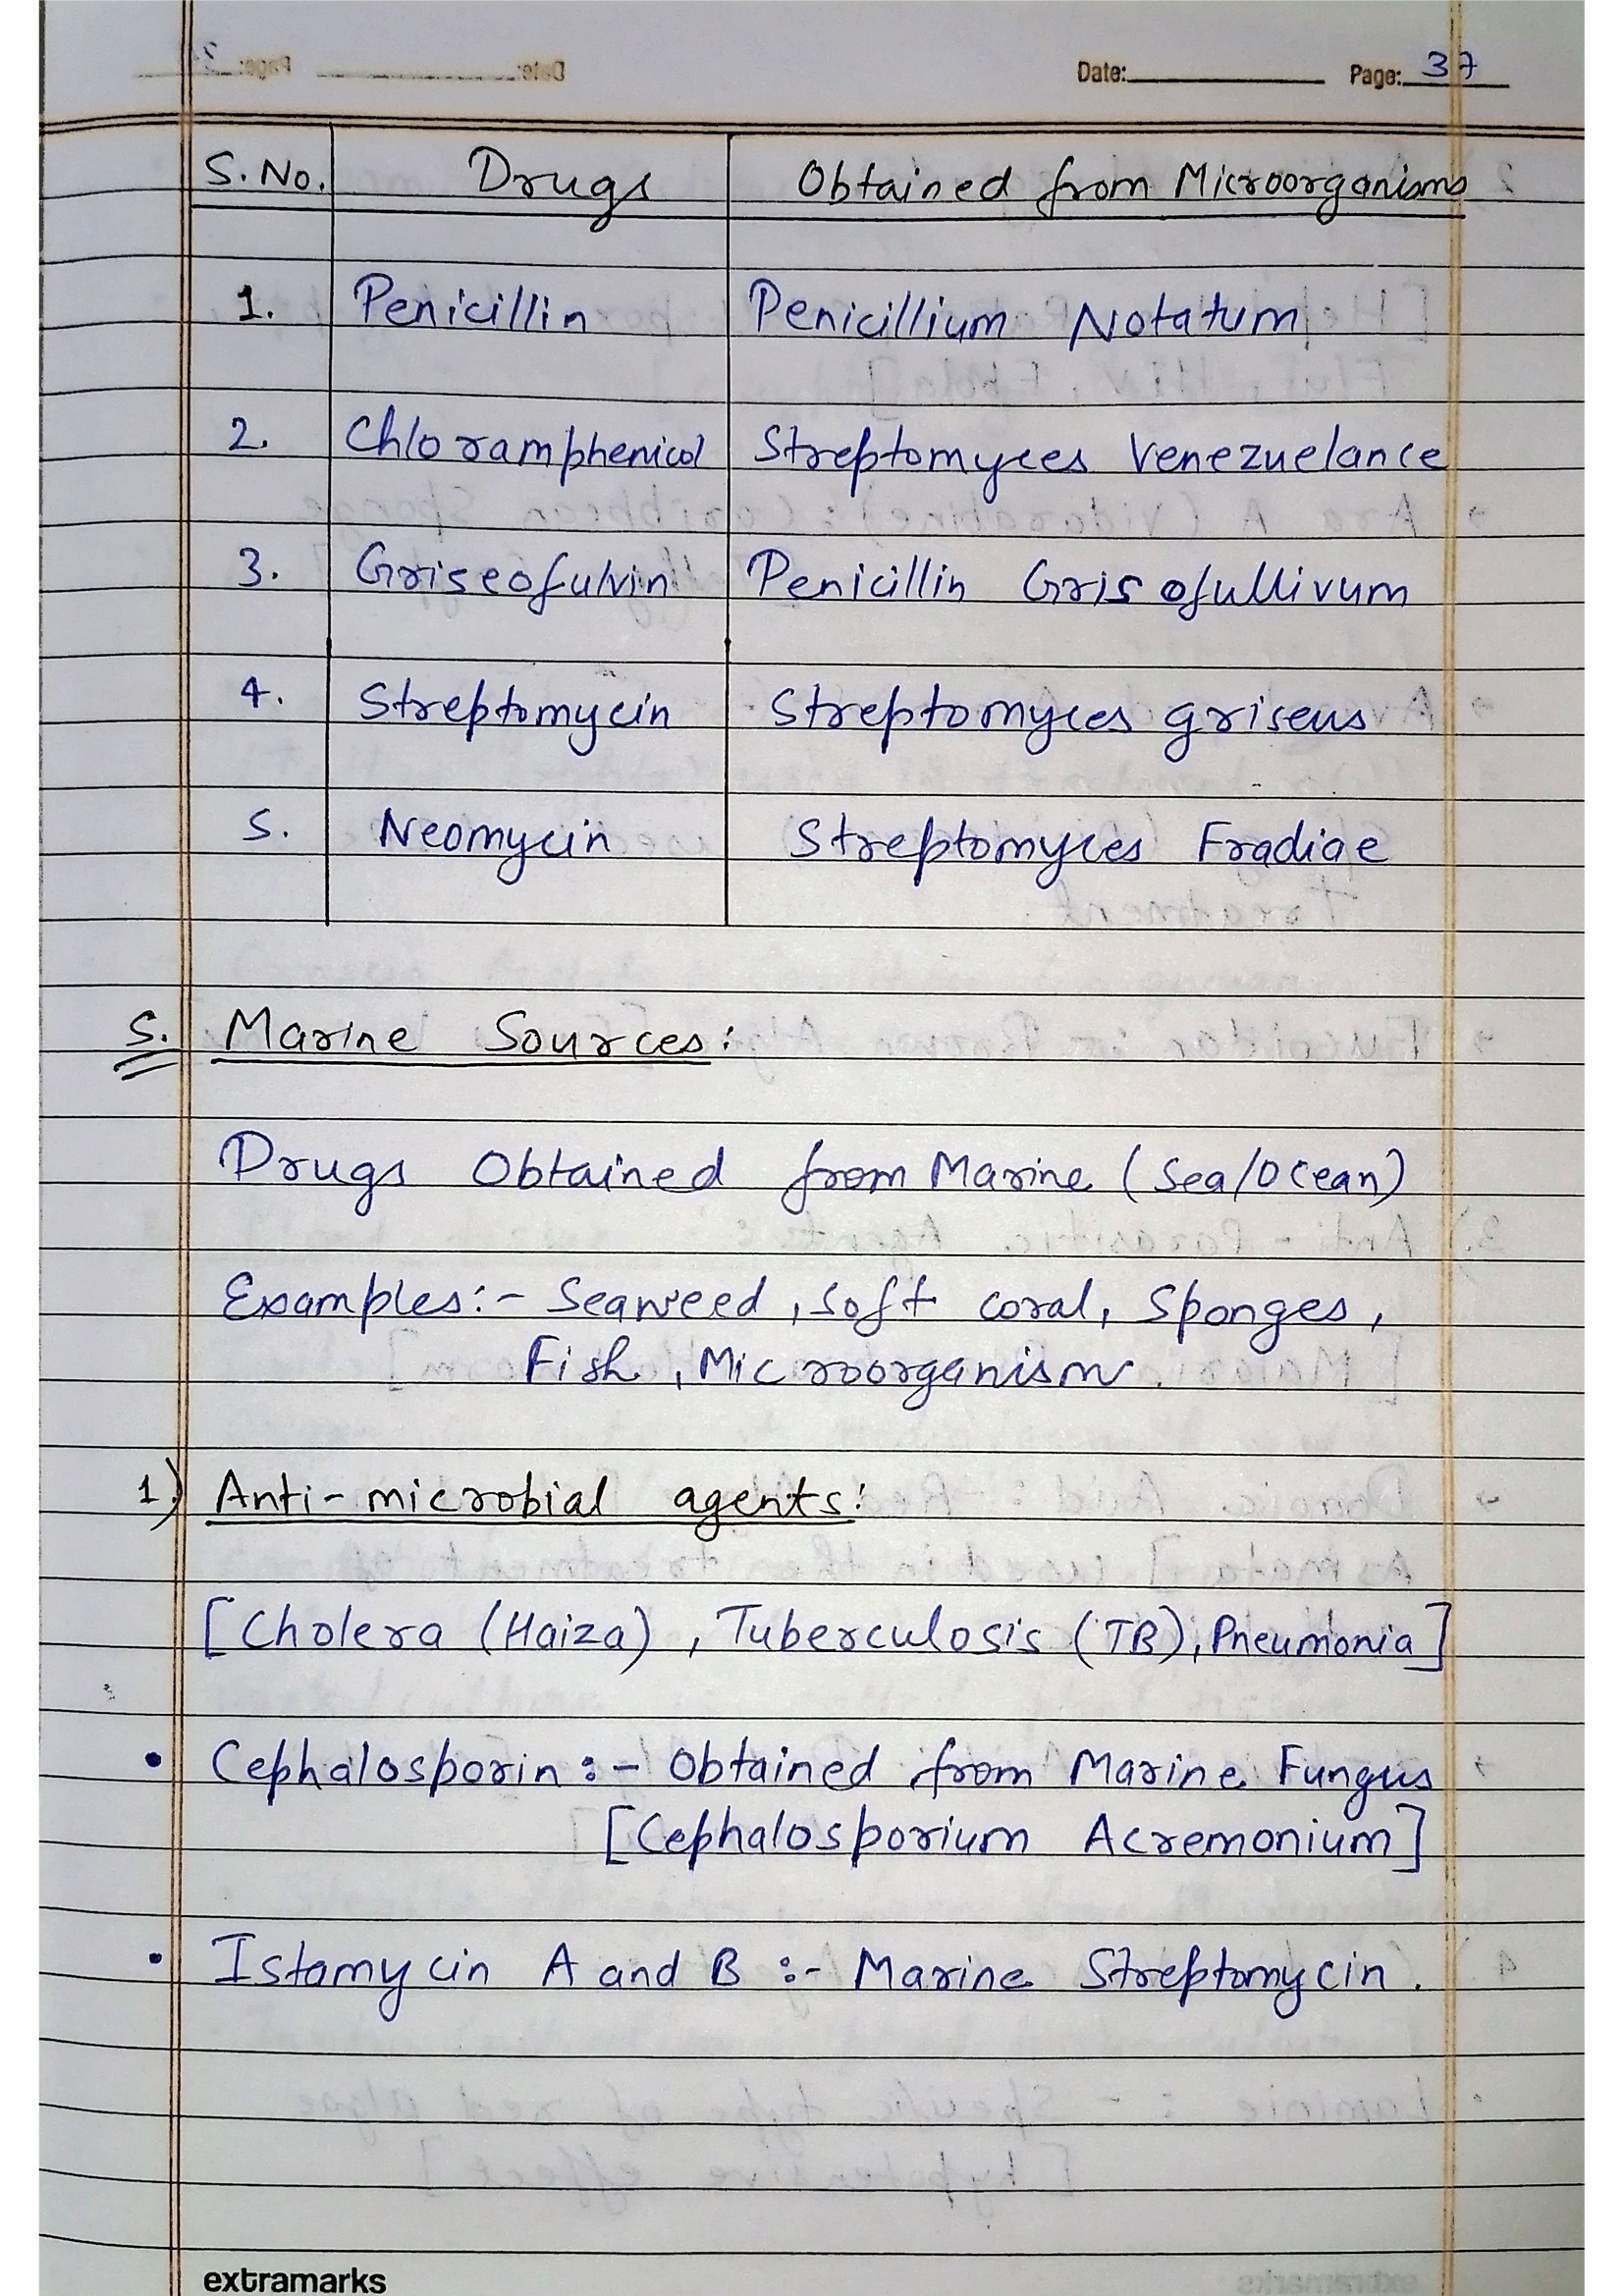 Date: Page: 37
S. No. Drugs Obtained from Microorganisms
1. Penicillin Penicillium Notatum
2. Chloramphenicol Streptomyces Venezuelance
3. Griseofulvin Penicillin Grisofullivum
4. Streptomycin Streptomyces griseus
5. Neomycin Streptomyces Fradiae
5. Marine Sources:
Drugs Obtained from Marine (Sea/Ocean)
Examples:- Seaweed, Soft coral, Sponges,
Fish, Microorganism.
1) Anti-microbial agents:
[Cholera (Haiza), Tuberculosis (TB), Pneumonia]
• Cephalosporin:- Obtained from Marine Fungus
[Cephalosporium Acremonium]
• Istamycin A and B :- Marine Streptomycin.
extramarks